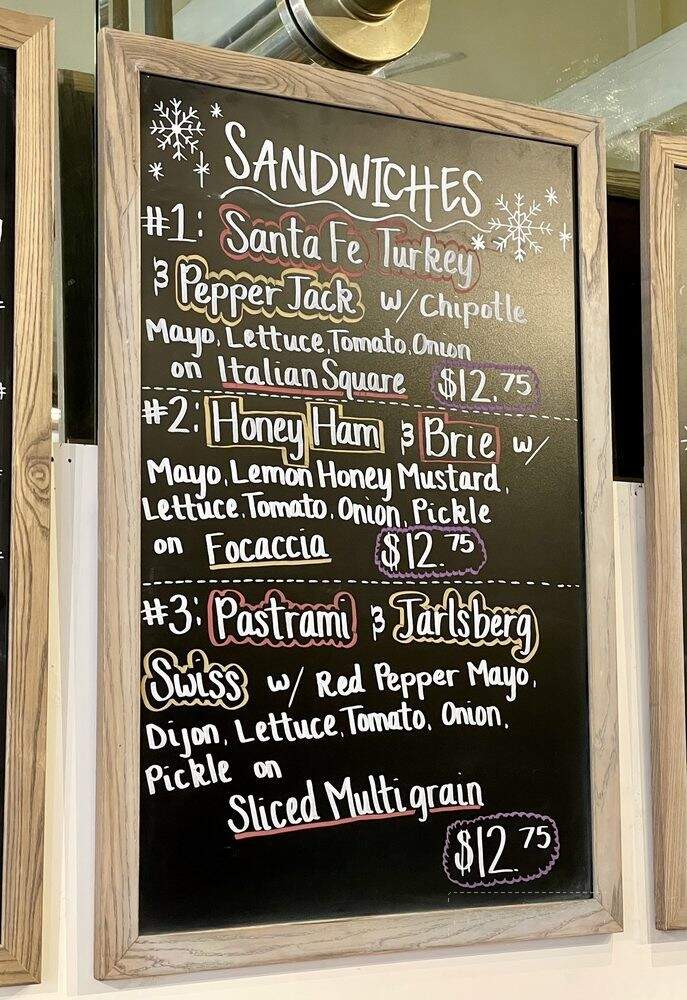 SANDWICHES
#1: Santa Fe Turkey
& Pepper Jack w/ Chipotle
Mayo, Lettuce, Tomato, Onion
on Italian Square $12.75
#2: Honey Ham & Brie w/
Mayo, Lemon Honey Mustard,
Lettuce, Tomato, Onion, Pickle
on Focaccia $12.75
#3: Pastrami & Jarlsberg
Swiss w/ Red Pepper Mayo,
Dijon, Lettuce, Tomato, Onion,
Pickle on
Sliced Multigrain
$12.75